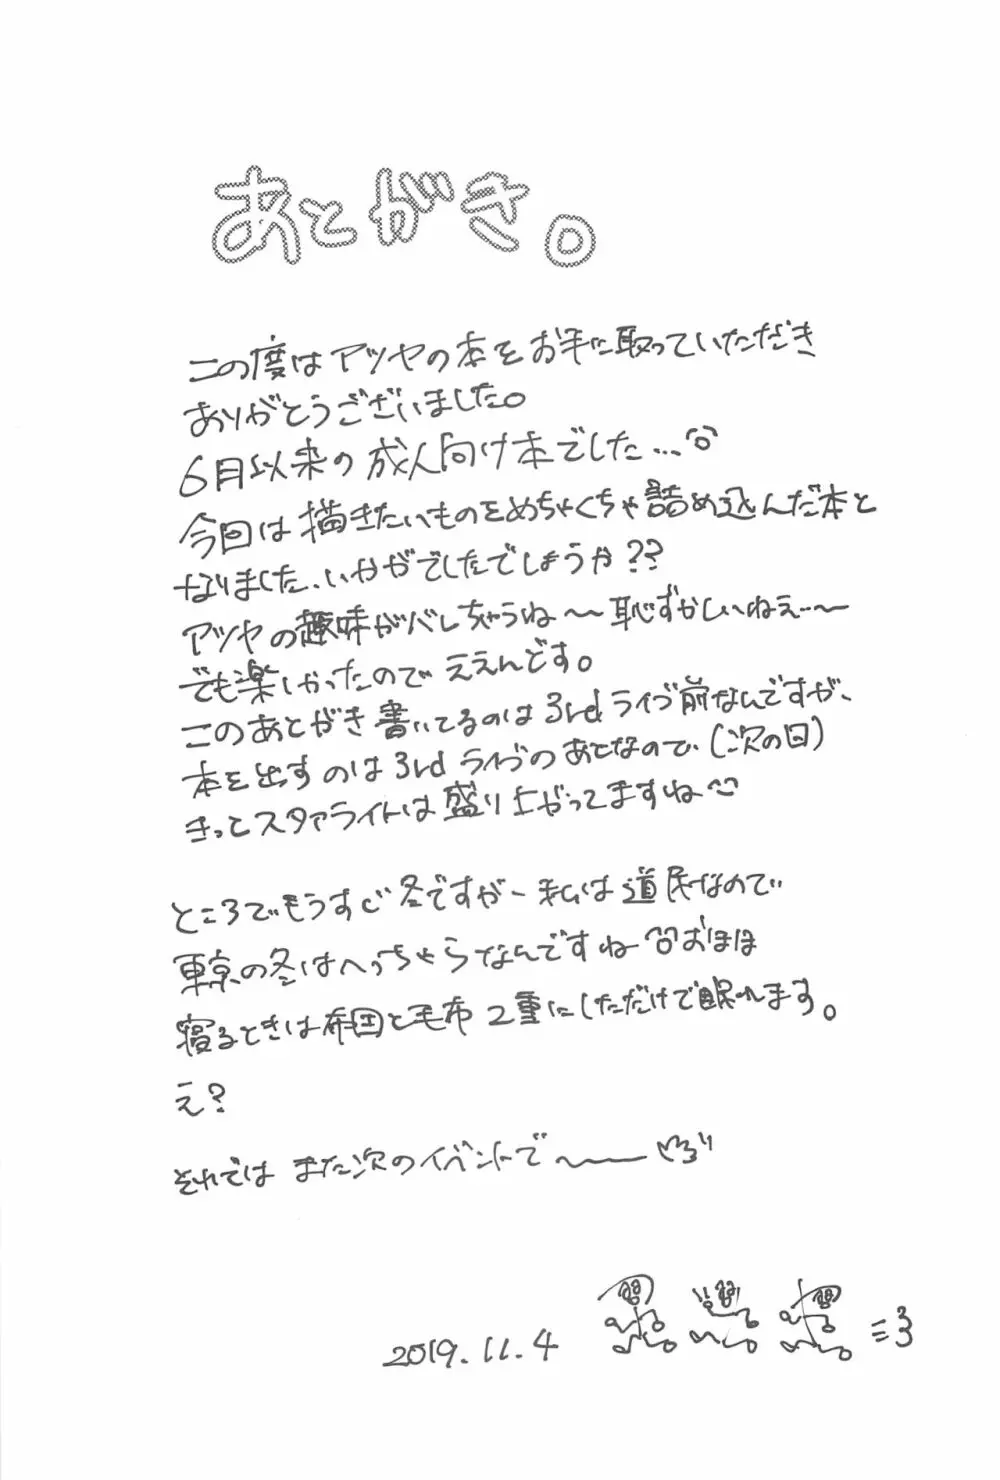 あとがき。
この度はアツヤの本をお手に取っていただき
ありがとうございました。
6月以来の成人向け本でした...
今回は描きたいものをめちゃくちゃ詰め込んだ本と
なりました、いかがでしたでしょうか??
アツヤの趣味がバレちゃうね〜恥ずかしいねぇ…〜
でも楽しかったのでええんです。
このあとがき書いてるのは3rdライブ前なんですが、
本を出すのは3rdライブのあとなので、(次の日)
きっとスタァライトは盛り上がってますね
ところでもうすぐ冬ですが、私は道民なので
東京の冬はへっちゃらなんですね おほほ
寝るときは布団と毛布2重にしただけで眠れます。
え?
それでは また次のイベントで〜
2019.11.4